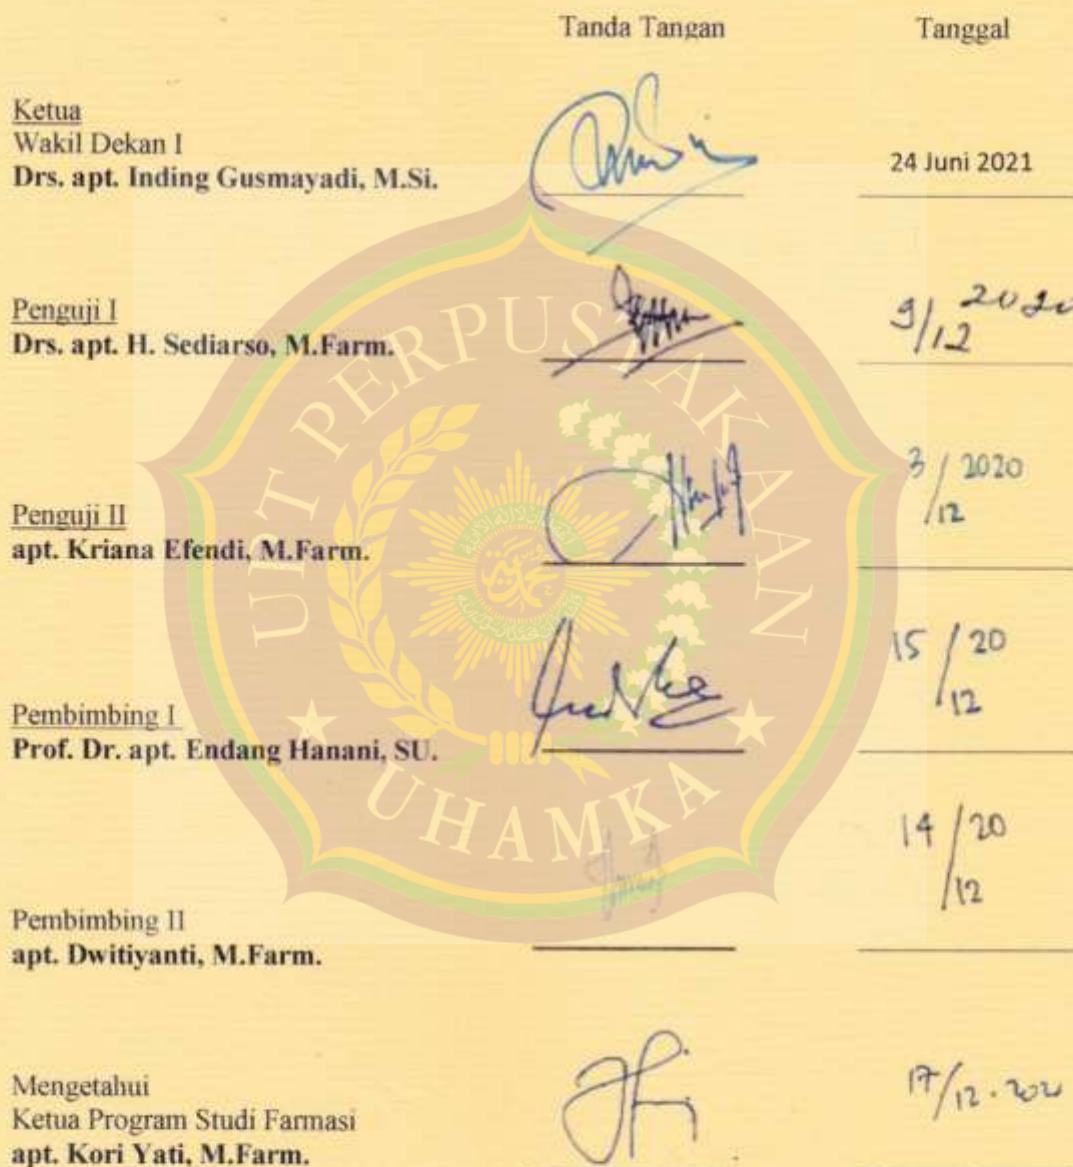 Tanda Tangan Tanggal
Ketua
Wakil Dekan I
Drs. apt. Inding Gusmayadi, M.Si. 24 Juni 2021
Penguji I
Drs. apt. H. Sediarso, M.Farm. 9/12 2020
Penguji II
apt. Kriana Efendi, M.Farm. 3/12 2020
Pembimbing I
Prof. Dr. apt. Endang Hanani, SU. 15/12 20
Pembimbing II
apt. Dwitiyanti, M.Farm. 14/12 20
Mengetahui
Ketua Program Studi Farmasi
apt. Kori Yati, M.Farm. 17/12.
UPT PERPUSTAKAAN
UHAMKA